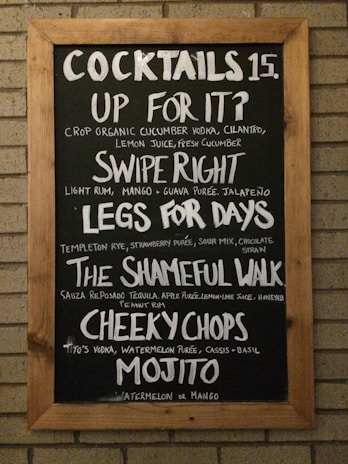 COCKTAILS 15.
UP FOR IT?
CROP ORGANIC CUCUMBER VODKA, CILANTRO,
LEMON JUICE, FRESH CUCUMBER
SWIPE RIGHT
LIGHT RUM, MANGO + GUAVA PURÉE, JALAPEÑO
LEGS FOR DAYS
TEMPLETON RYE, STRAWBERRY PURÉE, SOUR MIX, CHOCOLATE
STRAW
THE SHAMEFUL WALK
SAUZA REPOSADO TEQUILA, APPLE PURÉE, LEMON-LIME JUICE, HONEYED
PEANUT RIM
CHEEKY CHOPS
TITO'S VODKA, WATERMELON PURÉE, CASSIS + BASIL
MOJITO
WATERMELON OR MANGO